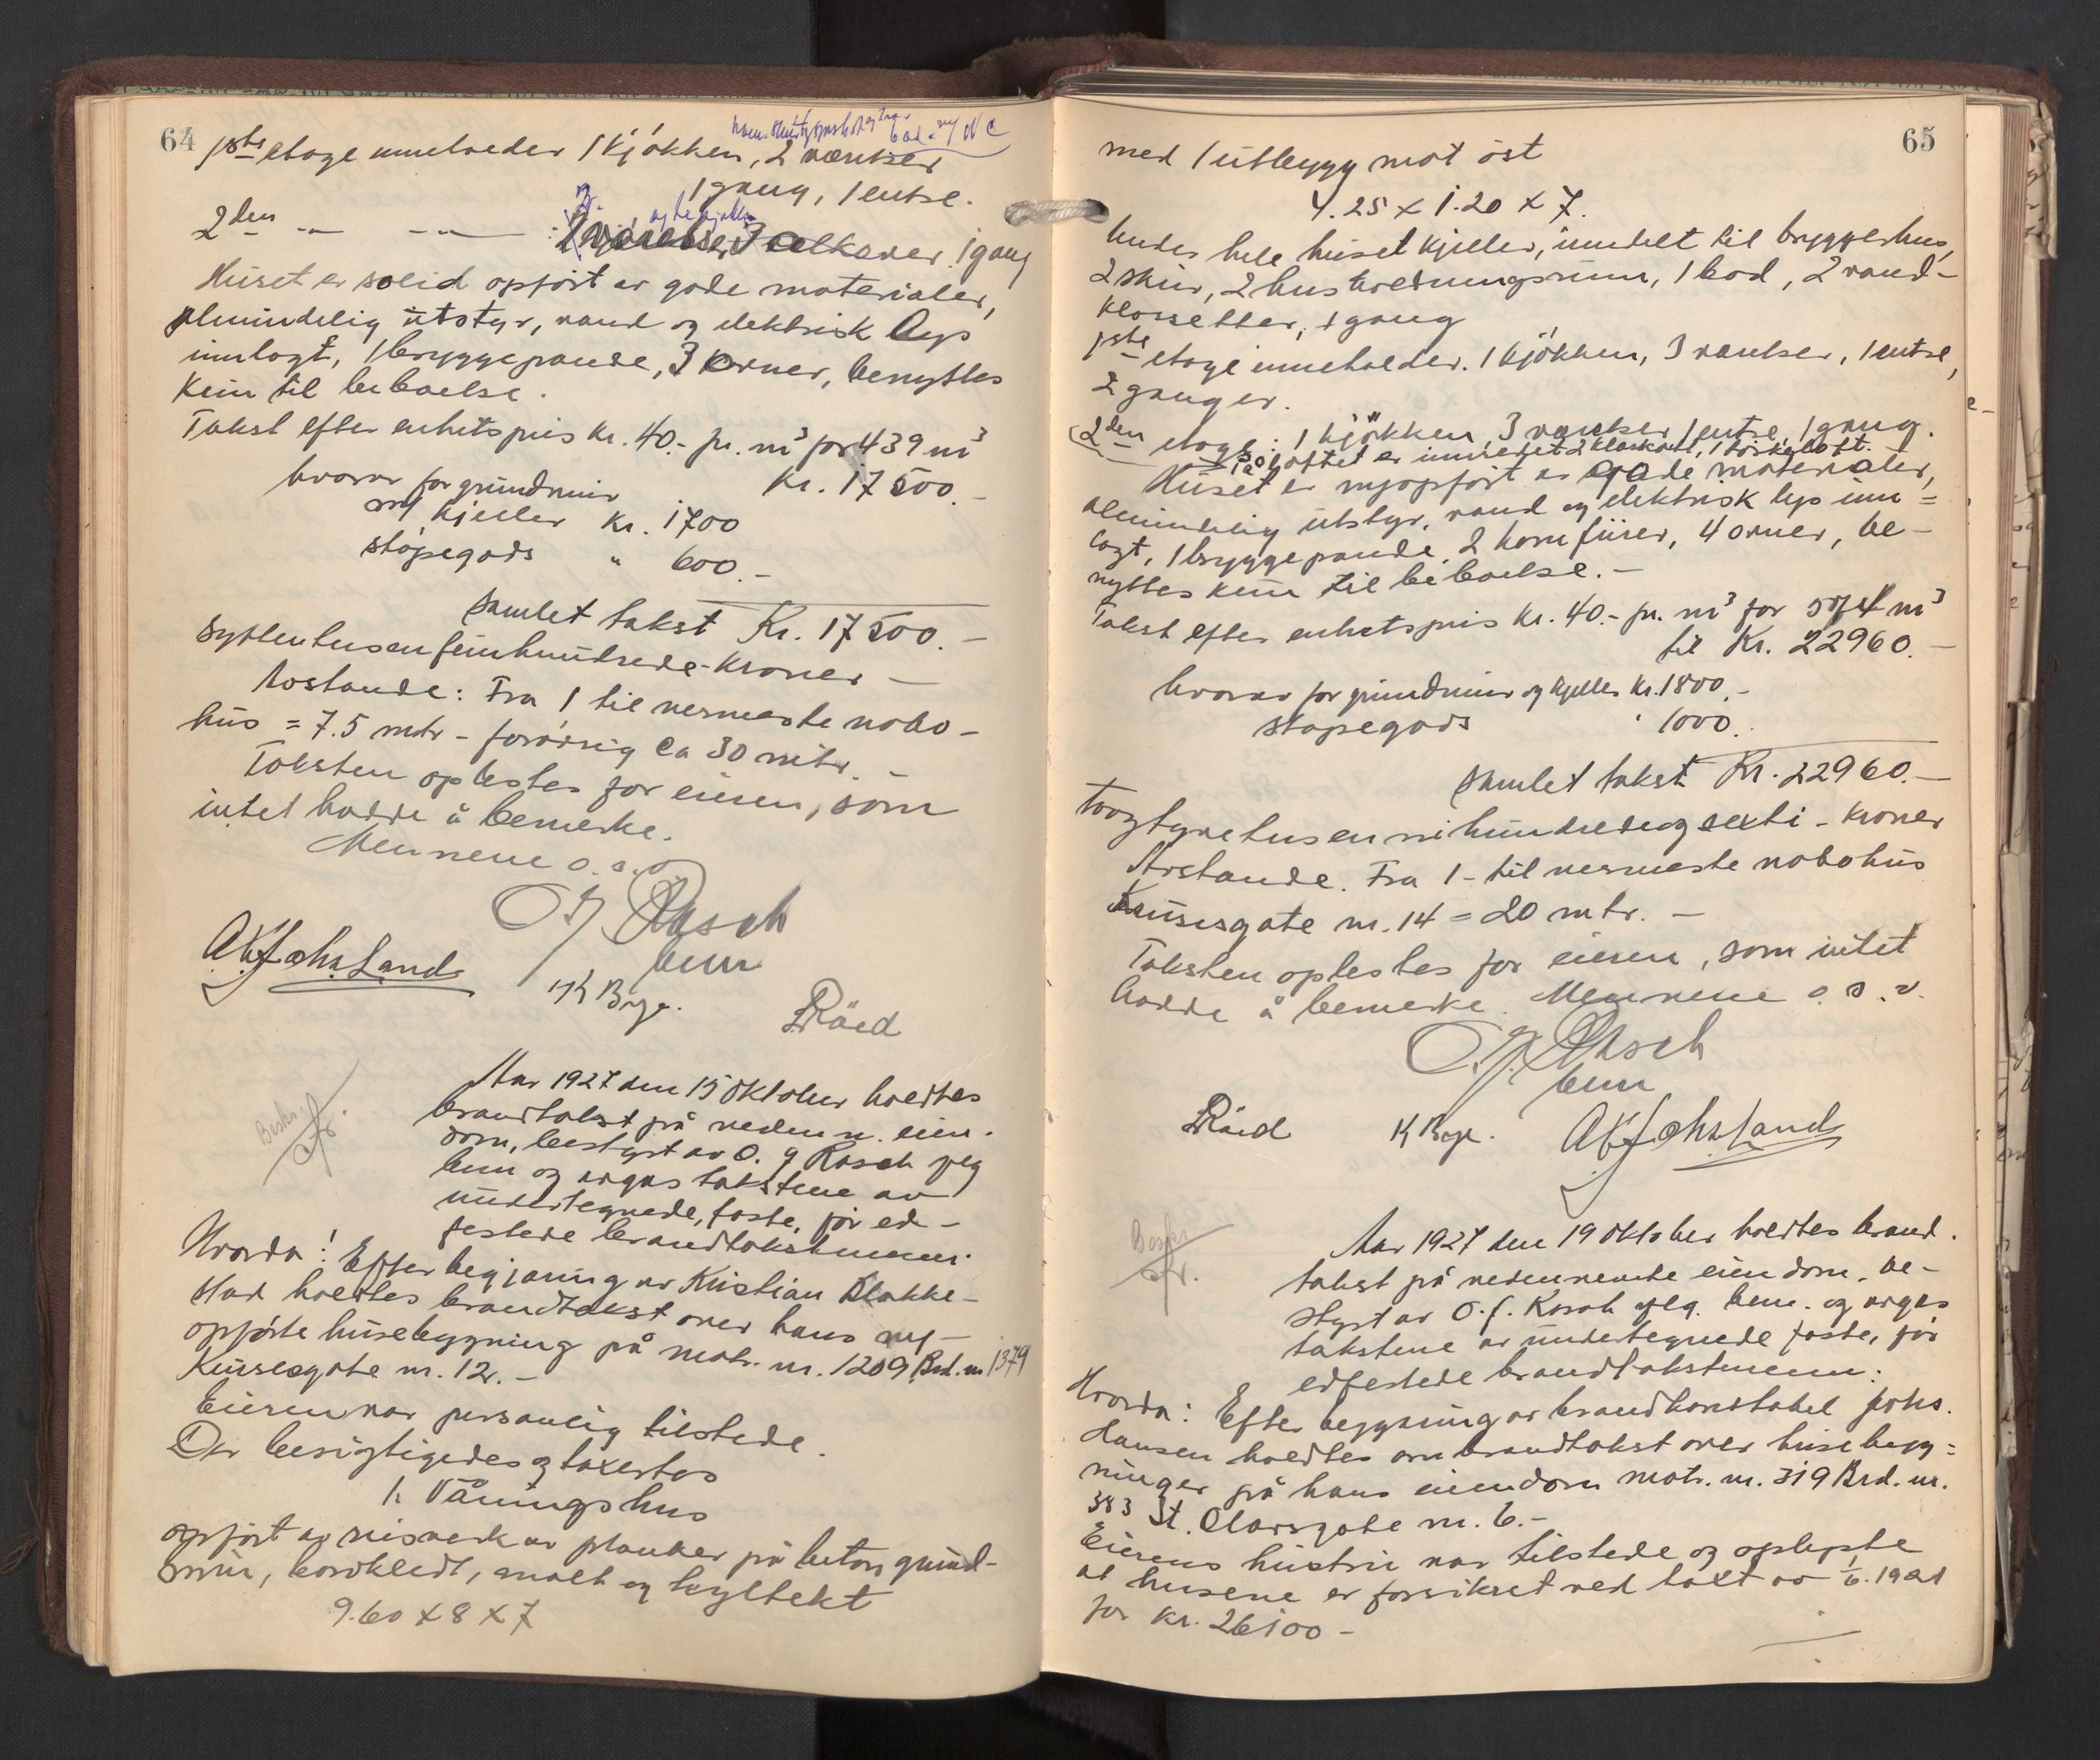 64
1ste etage inneholder 1 kjökken, 2 værelser
bad. m/ W C
1 gang, 1 entre.
2den " " : 2 værelser, 1 gang
Huset er solid opført av gode materialer,
almindelig utstyr, vand og elektrisk lys
innlagt, 1 bryggepande, 3 ovner, benyttes
kun til beboelse.
Takst efter enhetspris kr. 40.- pr. m³ for 439 m³
Kr. 17500.-
hvorav for grundmur
og kjeller kr. 1700
støpegods " 600.-
Samlet takst Kr. 17500.-
Syttentusenfemhundrede - kroner -
Avstande: Fra 1 til nermeste nabo-
hus = 7.5 mtr - forøvrig ca 30 mtr. -
Taksten oplestes for eieren, som
intet hadde å bemerke.
Mennene o.s.v.
O J Rasch
bem
K Bøge.
Röed
Aar 1927 den 15 Oktober holdtes
brandtakst på nedenn. eien-
dom, bestyrt av O. J Rasch fylg
bem og avgas takstene av
undertegnede, faste, før ed-
festede brandtakstmenn.
Hvorda! Efter begjæring av Kristian Klakke-
stad holdtes brandtakst over hans ny-
opførte husebygning på matr. nr. 1209 Brd. nr 1379
Krusesgate nr. 12. -
Eieren var personlig tilstede.
Der besigtigedes og taxertes
1. Våningshus
opført av reisverk av planker på beton grund-
mur, bordkledt, malt og tegltekt
9.60 x 8 x 7
65
med 1 utbygg mot öst
4.25 x 1.20 x 7.
Under hele huset kjeller, inndelt til bryggerhus,
2 skur, 2 husholdningsrum, 1 bod, 2 vand-
klossetter, 1 gang
1ste etage inneholder. 1 kjökken, 3 værelser, 1 entre,
2 ganger.
2den etage: 1 kjökken, 3 værelser 1 entre, 1 gang.
På loftet er innredet 2 kleskott, 1 törkeloft.
Huset er nyopført av gode materialer,
almindelig utstyr, vand og elektrisk lys inn=
lagt, 1 bryggepande, 2 komfurer, 4 ovner, be-
nyttes kun til beboelse. -
Takst efter enhetspris kr. 40.- pr. m³ for 574 m³
til Kr. 22960.-
hvorav for grundmur og kjeller kr. 1800.-
støpegods " 1000.
Samlet takst Kr. 22960.-
Toogtyvetusennihundredeogseksti - kroner
Avstande. Fra 1 - til nermeste nabohus
Krusesgate nr. 14 = 20 mtr. -
Taksten oplestes for eieren, som intet
hadde å bemerke. Mennene o. s. v.
O. J. Rasch
bem
Röed
K Bøge.
Aar 1927 den 19 Oktober holdtes brand-
takst på nedennevnte eiendom, be-
styrt av O. J. Rasch fylg. bem. og avgas
takstene av undertegnede faste, før
edfestede brandtakstmenn:
Hvorda: Efter begjæring av brandkonstabel Johs.
Hansen holdtes om brandtakst over husebygg=
ninger på hans eiendom matr. nr. 319 Brd. nr.
383 St. Olavsgate nr. 6. -
Eierens hustru var tilstede og oplyste
at husene er forsikret ved takst av 1/6. 1921
for kr. 26100 -